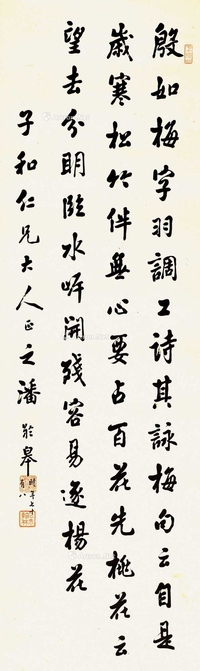 殷如梅字羽調工詩其詠梅句云自是
歲寒松竹伴無心要占百花先桃花云
望去分明臨水岸開殘容易逐楊花
子和仁兄大人正之潘齡皋
時年七十有八